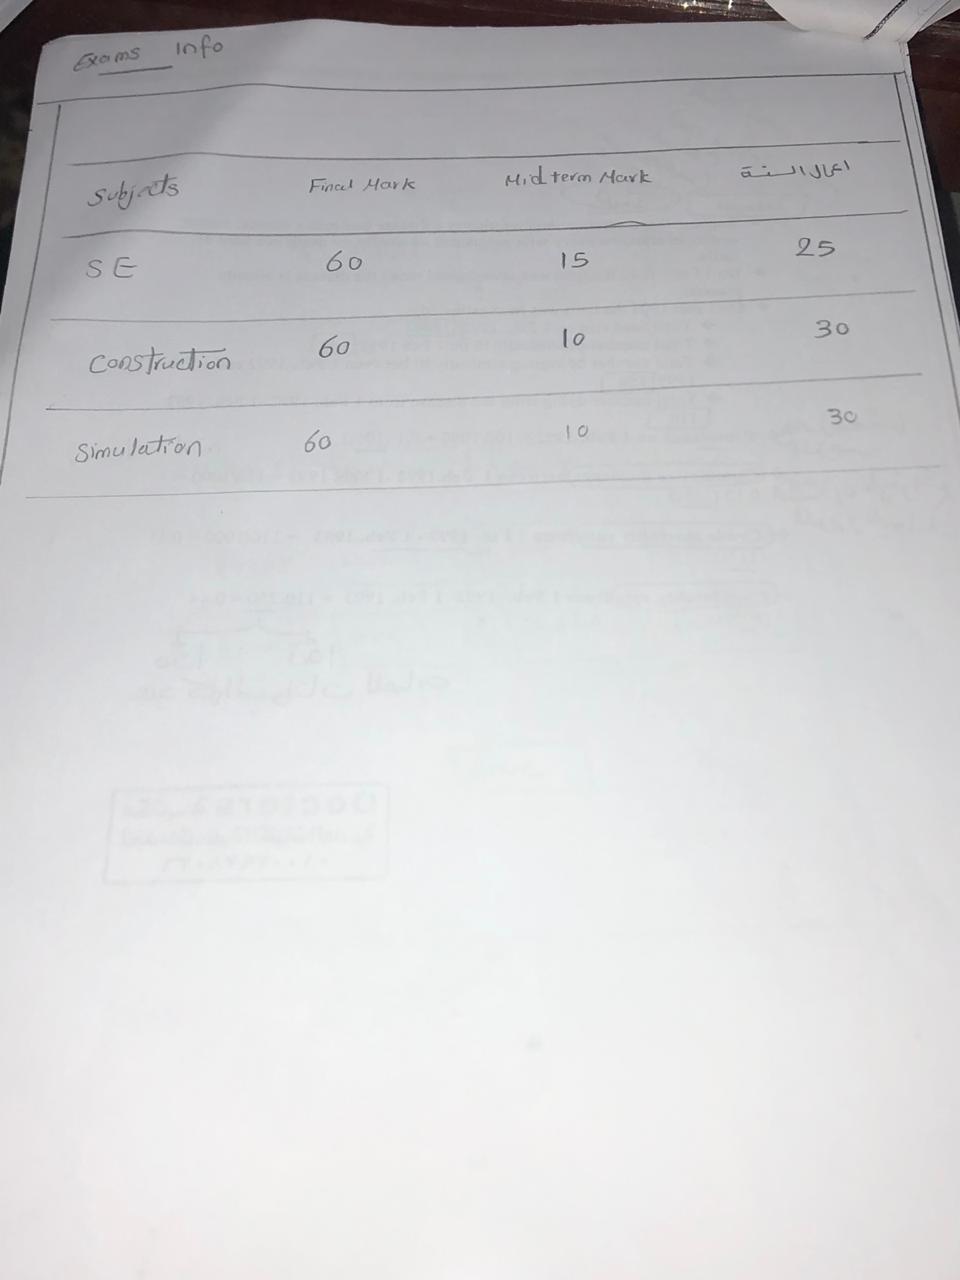 Exams Info
Subjects Final Mark Midterm Mark اعمال السنة
SE 60 15 25
Construction 60 10 30
Simulation 60 10 30